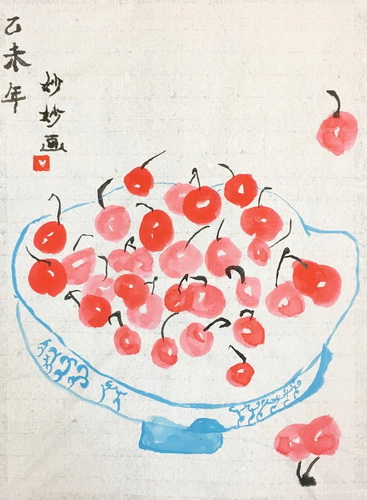 乙未年
妙妙画